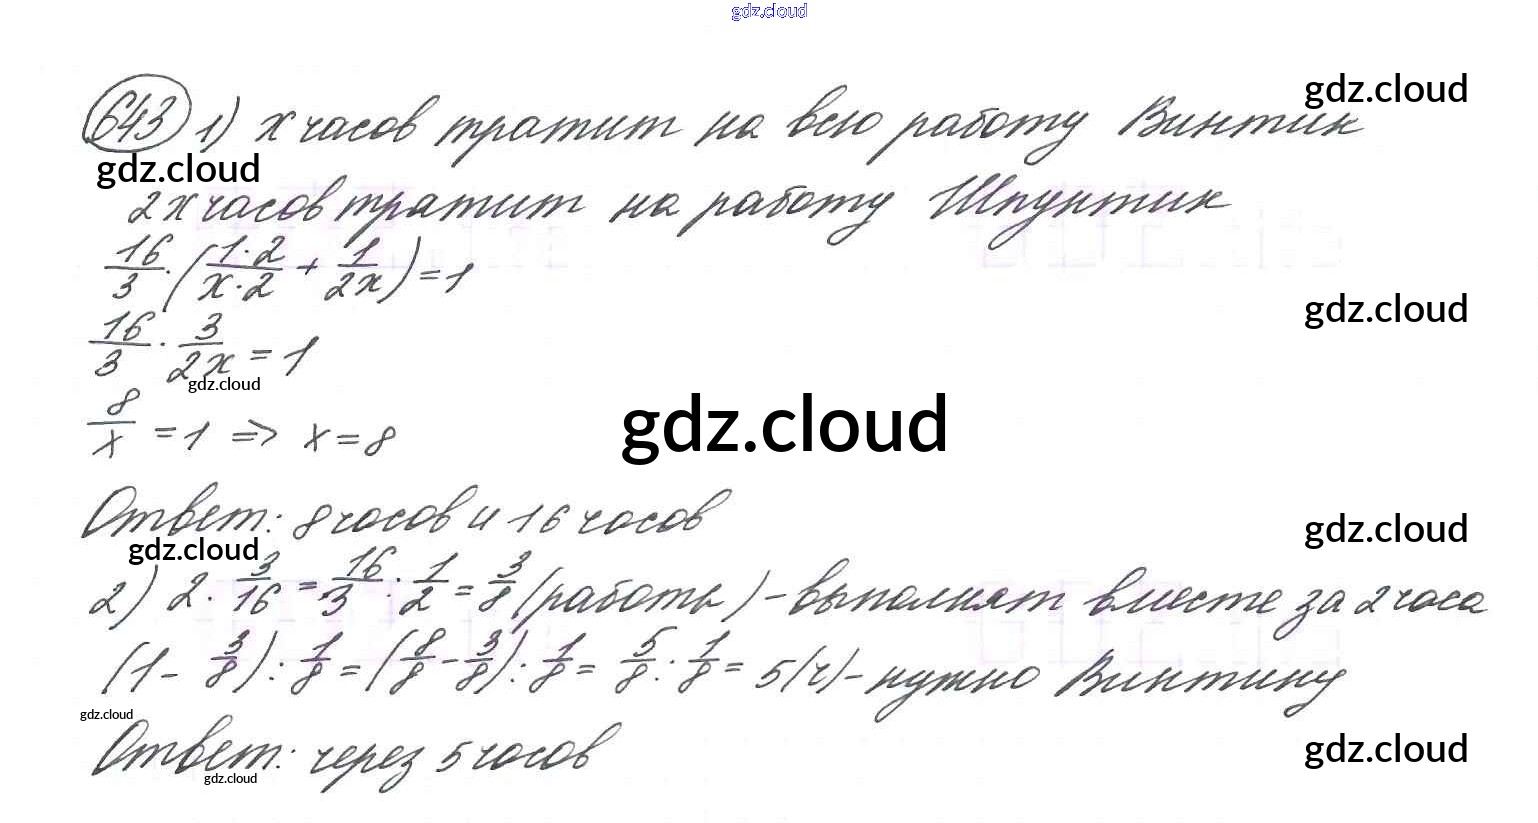 gdz.cloud
643 1) х часов тратит на всю работу Винтик
gdz.cloud
gdz.cloud
2х часов тратит на работу Шпунтик
16/3 · (1·2/х·2 + 1/2х) = 1
gdz.cloud
16/3 · 3/2х = 1
gdz.cloud
8/х = 1 => х = 8
gdz.cloud
Ответ: 8 часов и 16 часов
gdz.cloud
gdz.cloud
2) 2 · 3/16 = 16/3 : 1/2 = 3/8 (работы) - выполнят вместе за 2 часа
(1 - 3/8) : 1/8 = (8/8 - 3/8) : 1/8 = 5/8 : 1/8 = 5 (ч) - нужно Винтику
gdz.cloud
Ответ: через 5 часов
gdz.cloud
gdz.cloud